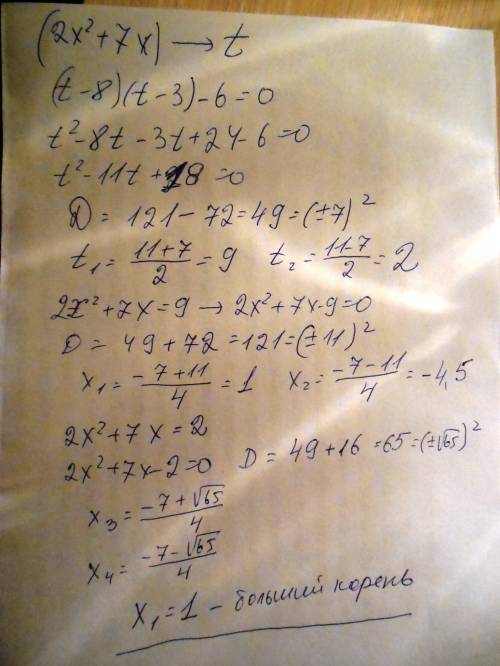 (2x²+7x) → t
(t-8)(t-3)-6=0
t²-8t-3t+24-6=0
t²-11t+18=0
D = 121-72=49=(±7)²
t₁ = (11+7)/2 = 9 t₂ = (11-7)/2 = 2
2x²+7x=9 → 2x²+7x-9=0
D = 49+72=121=(±11)²
x₁ = (-7+11)/4 = 1 x₂ = (-7-11)/4 = -4,5
2x²+7x=2
2x²+7x-2=0 D = 49+16=65=(±√65)²
x₃ = (-7+√65)/4
x₄ = (-7-√65)/4
x₁=1 - больший корень